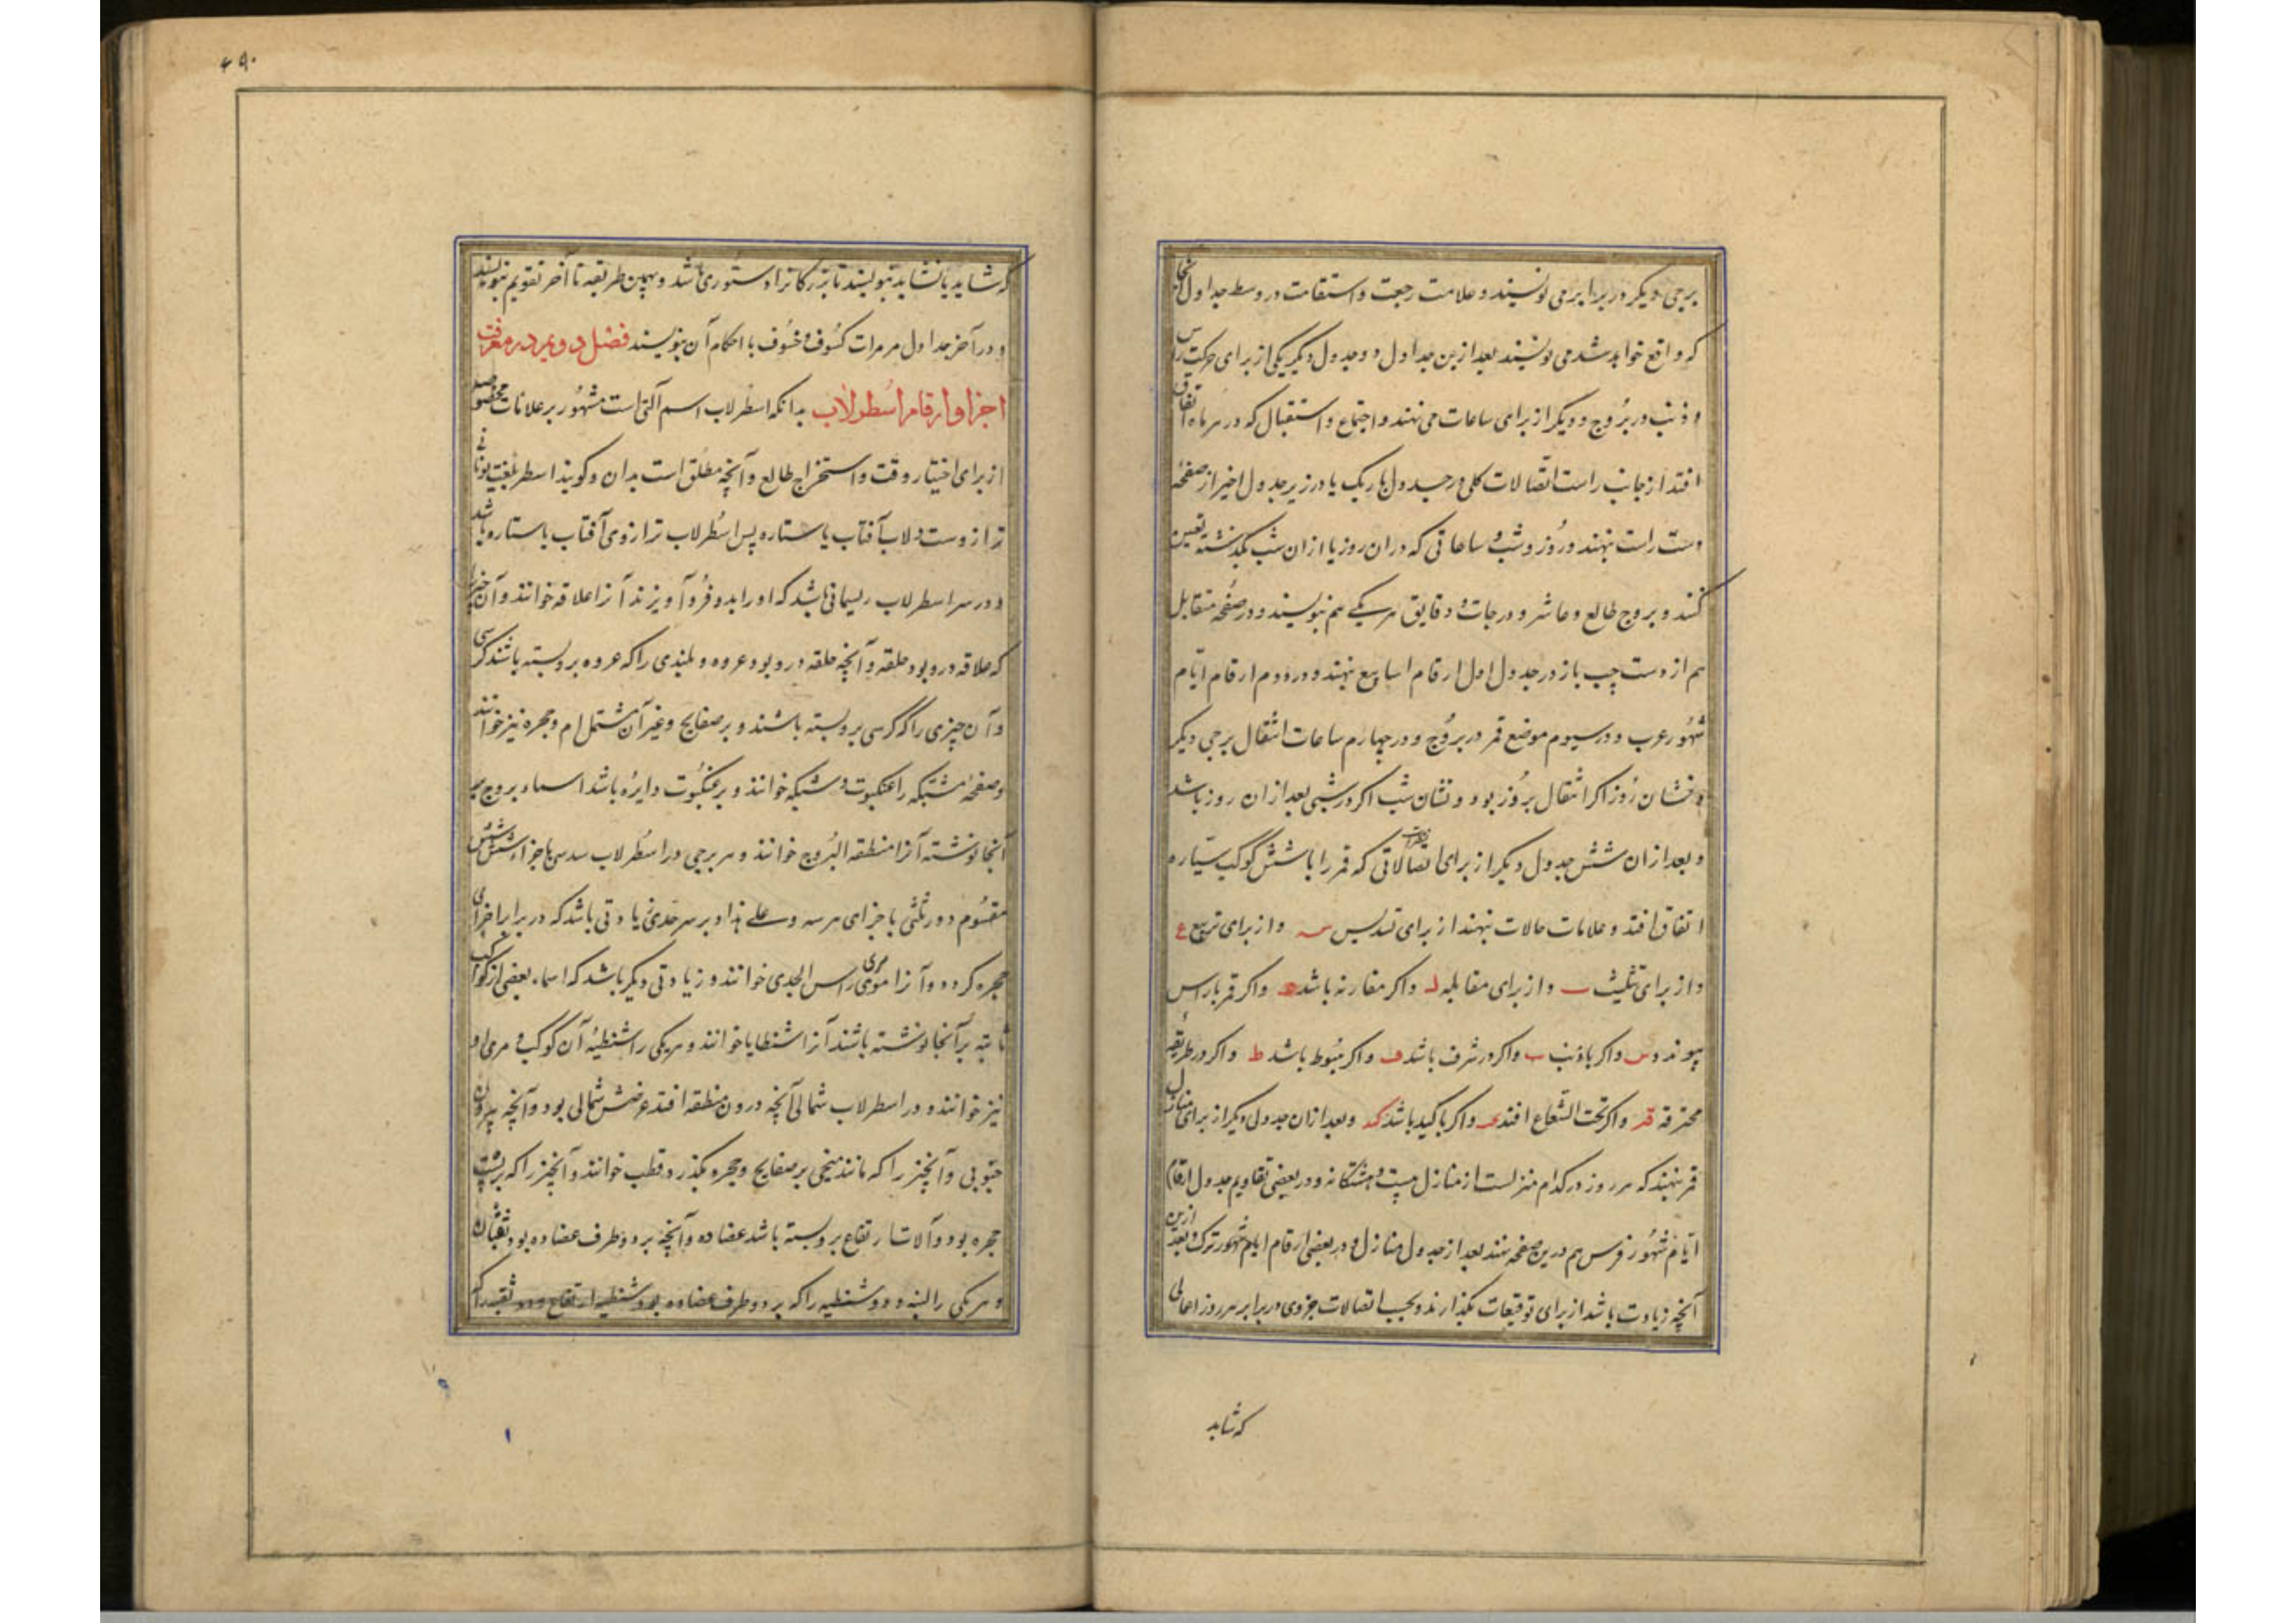 برجی دیگر در برابر می نویسند و علامت رجعت و استقامت در وسط جداول آنجا
که واقع خواهد شد می نویسند بعد ازین جداول دو جدول دیگر یکی از برای حرکت راس
و ذنب در بروج و دیگر از برای ساعات می نهند و اجتماع و استقبال که در هر ماه اتفاق
افتد از جانب راست اتصالات کلی در جدول باریک یا در زیر جدول اخیر از صفحهٔ
دست راست نهند و روز و شب و ساعاتی که در ان روز یا از ان شب بگذشته تعیین
کنند و بروج طالع و عاشر و درجات و دقایق هر یکی هم بنویسند و در صفحه متقابل
هم از دست چپ باز در جدول اول ارقام اسابیع نهند و در دوم ارقام ایام
شهور عرب و در سیوم موضع قمر در بروج و در چهارم ساعات انتقال برجی دیگر
و نشان روز اگر انتقال بروز بود و نشان شب اگر در شبی بعد از ان روز باشد
و بعد از ان شش جدول دیگر از برای اتصالاتی که قمر را با شش کوکب سیاره
اتفاق افتد و علامات حالات نهند از برای تسدیس س و از برای تربیع ع
و از برای تثلیث ث و از برای مقابله ل و اگر مقارنه باشد ه و اگر قمر باراس
پیوندد س و اگر با ذنب ب و اگر در شرف باشد ف و اگر هبوط باشد ط و اگر در طریقه
محترقه قه و اگر تحت الشعاع افتد ع و اگر با کید باشد کد و بعد از ان جدولی دیگر از برای منازل
قمر نهند که هر روز در کدام منزلست از منازل بیست و هشتگانه و در بعضی تقاویم جدول ارقام
ایام شهور فرس هم درین صفحه نهند بعد از جدول منازل و در بعضی ارقام ایام شهور ترک و بعد ازین
آنچه زیادت باشد از برای توقیعات بگذارند و بحسب اتصالات جزوی در برابر هر روز اعمالی
که شاید
۴۹۰
که شاید یا نشاید بنویسند تا بزرگانرا دستوری باشد و بهمین طریقه تا آخر تقویم بنویسند
و در آخر جداول مر مرات کسوف و خسوف با احکام آن بنویسند فصل دویم در معرفت
اجزا و ارقام اسطرلاب بدانکه اسطرلاب اسم آلتی است مشهور بر علامات مخصوصه
از برای اختیار وقت و استخراج طالع و آنچه مطلق است بدان و گویند اسطر بلغت یونانی
ترازوست و لاب آفتاب یا ستاره پس اسطرلاب ترازوی آفتاب یا ستاره باشد
و در سر اسطرلاب ریسمانی باشد که او را بدو فرو آویزند آنرا علاقه خوانند و آن چیز را
که علاقه درو بود حلقه و آنچه حلقه درو بود عروه و بلندی را که عروه برو بسته باشند کرسی
و آن چیزی را که کرسی برو بسته باشند و بر صفایح و غیر آن مشتمل ام و حجره نیز خوانند
و صفحه مشبکه را عنکبوت و شبکه خوانند و بر عنکبوت دایره باشد اسماء بروج بر
آنجا نوشته آنرا منطقه البروج خوانند و هر برجی در اسطرلاب سدسی باجزاء شش شش
مقسوم و در ثلثی باجزای هر سه و علی هذا و بر سر جدی زیادتی باشد که در برابر اجزای
حجره گردد و آنرا مری راس الجدی خوانند و زیادتی دیگر باشد که اسماء بعضی از کواکب
ثابته بر آنجا نوشته باشند آنرا شظایا خوانند و هر یکی را شظیهٔ آن کوکب و مری او
نیز خوانند و در اسطرلاب شمالی آنچه درون منطقه افتد عرضش شمالی بود و آنچه بیرون
جنوبی و آنچیز را که مانند میخی بر صفایح و حجره بگذرد قطب خوانند و آنچیز را که بر پشت
حجره بود و آلات ارتفاع برو بسته باشد عضاده و آنچه بر دو طرف عضاده بود ثقبتان
و هر یکی را لبنه و دو شظیه را که بر دو طرف عضاده بود شظیه ارتفاع و دو ثقبه را که